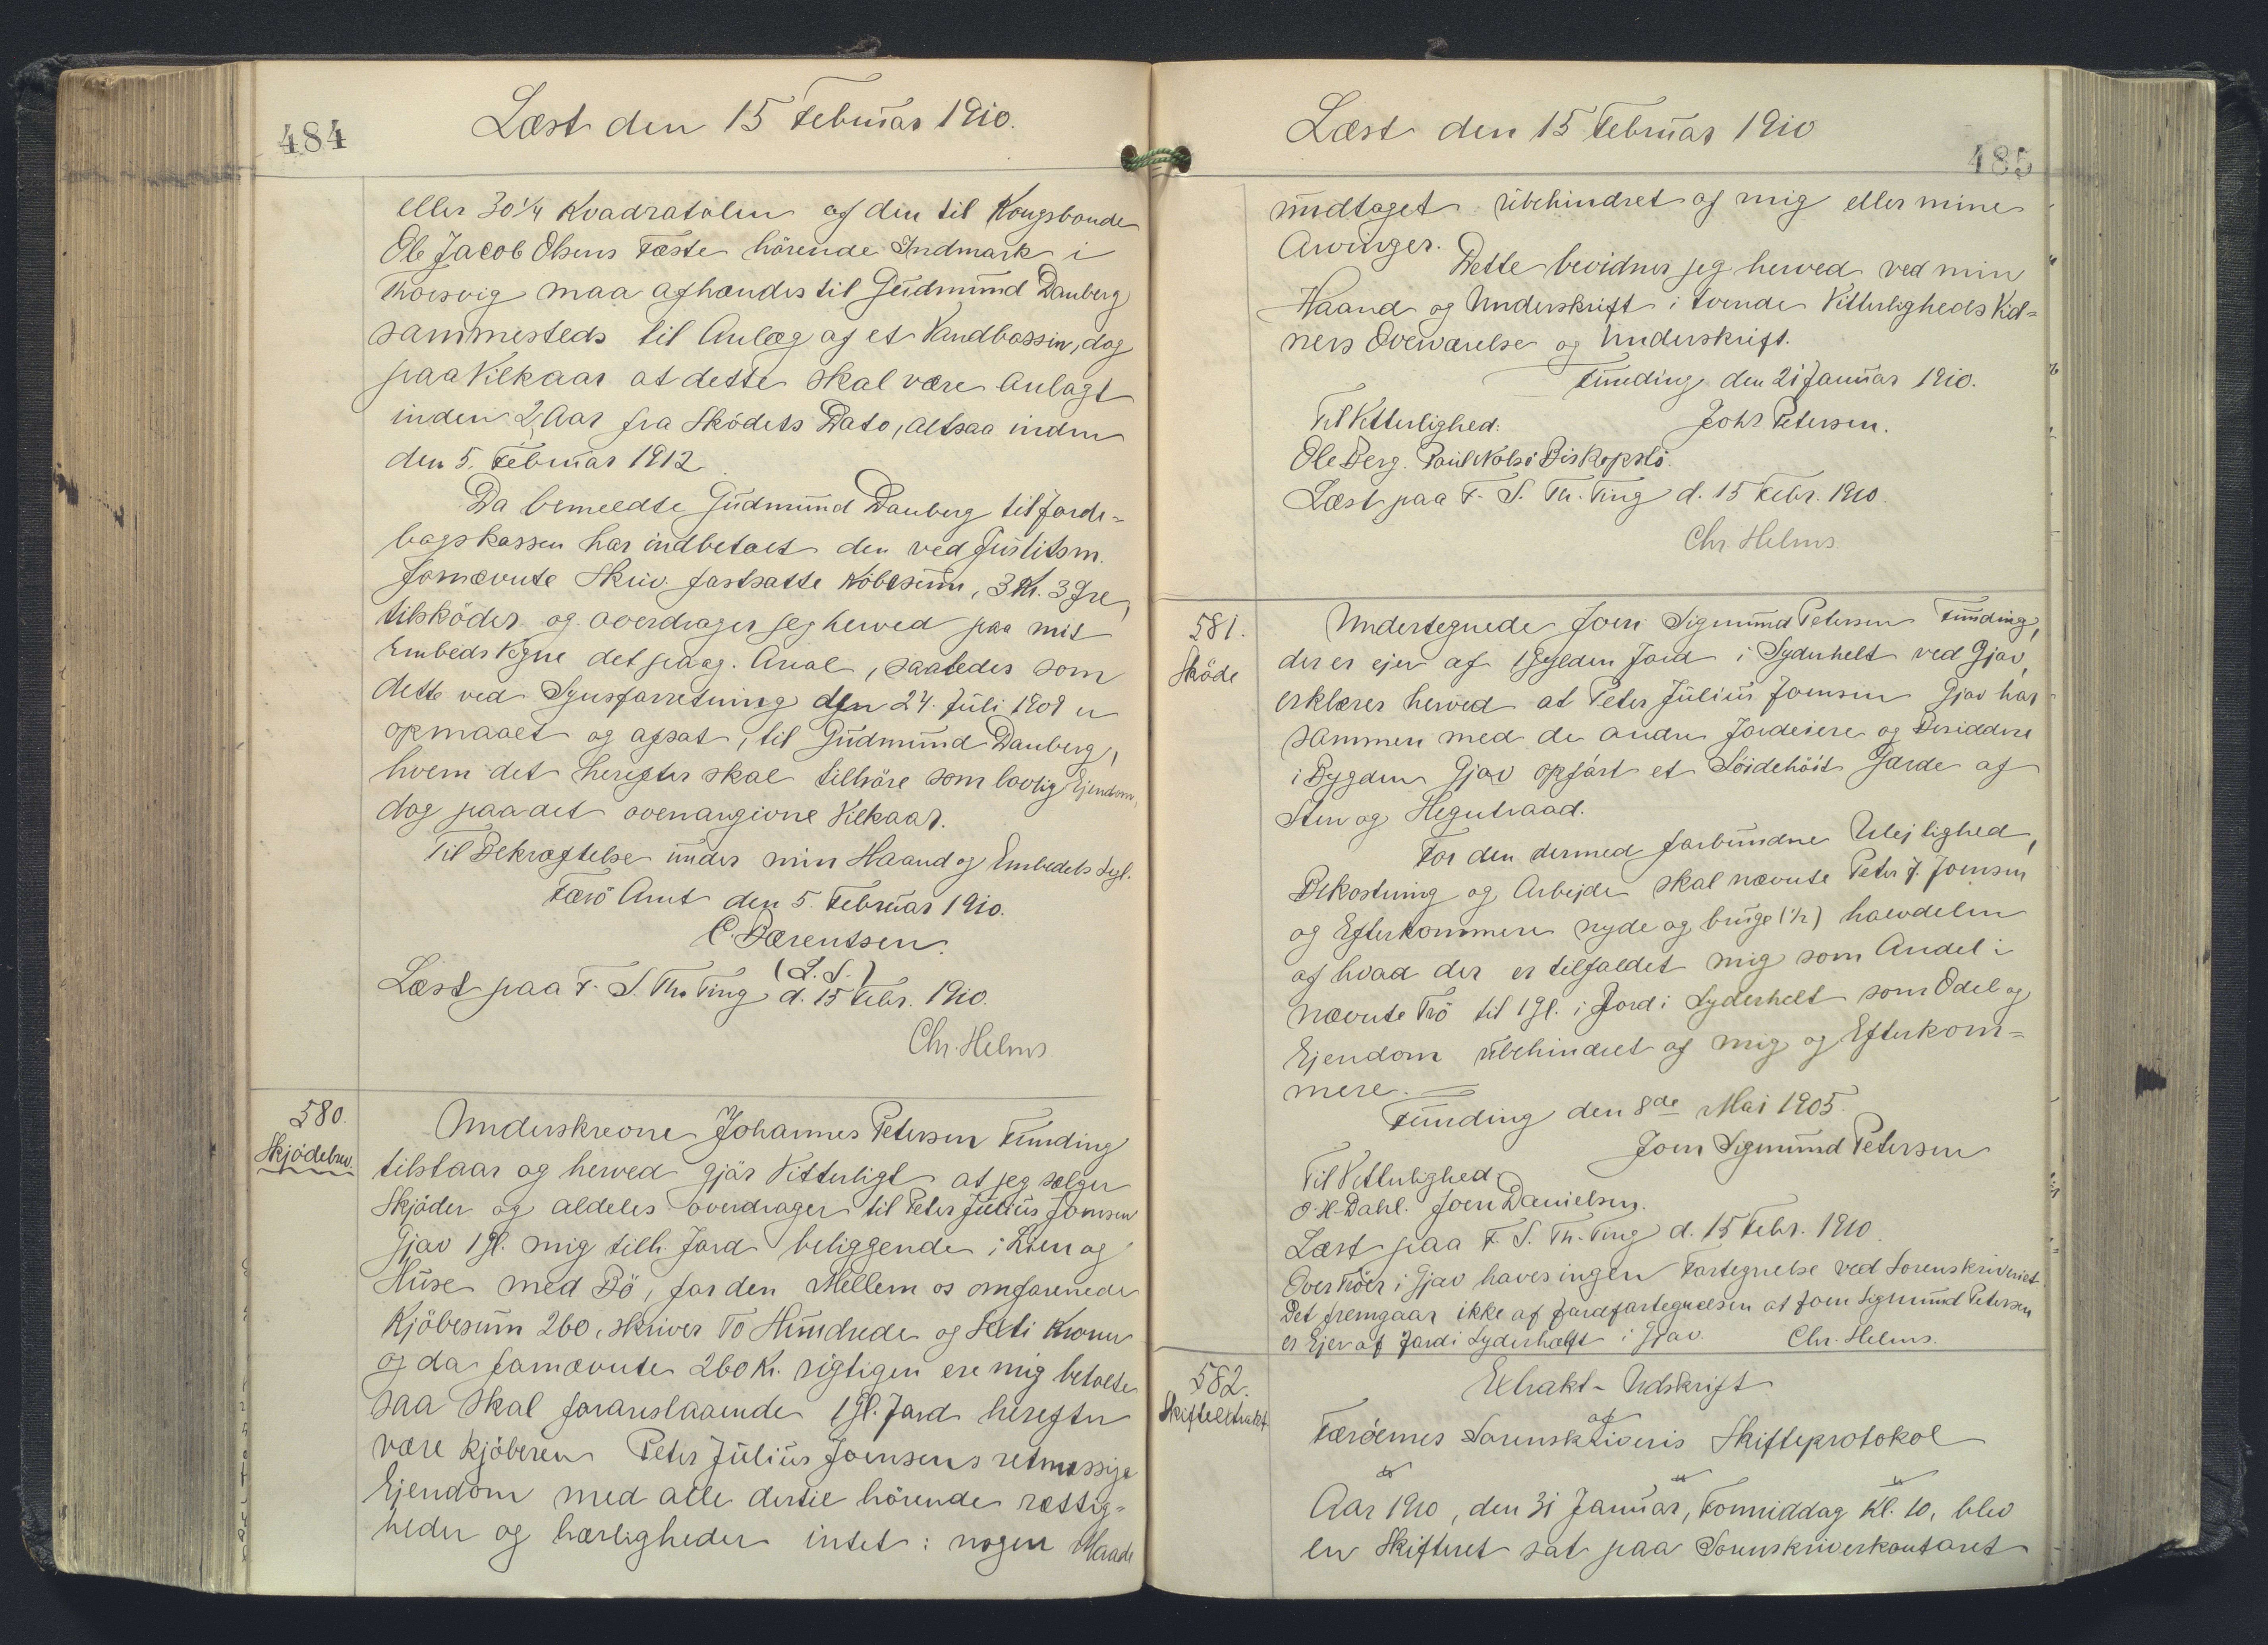 484
Læst den 15 Februar 1910.
eller 30¼ Kvadratalen af den til Kongsbonde
Ole Jacob Olsens Fæste hörende Indmark i
Thorsvig maa afhændes til Gudmund Danberg
sammesteds til Anlæg af et Vandbassin, dog
paa Vilkaar at dette skal være anlagt
inden 2 Aar fra Sködets Dato, altsaa inden
den 5. Februar 1912.
Da bemeldte Gudmund Danberg til Jorde=
bogskassen har indbetalt den ved Justitsm.
fornævnte Skriv. fastsatte Købesum, 3 Kr. 3 Øre,
tilskøder og overdrager jeg herved paa mit
Embeds Vegne det paag. Areal, saaledes som
dette ved Synsforretning den 24. Juli 1909 er
opmaalt og afsat, til Gudmund Danberg,
hvem det herefter skal tilhöre som lovlig Ejendom,
dog paa det ovenangivne Vilkaar.
Til Bekræftelse under min Haand og Embedets Segl.
Færö Amt den 5. Februar 1910.
C. Bærentsen.
(L.S.)
Læst paa F. S. Th. Ting d. 15 Febr. 1910.
Chr. Helms
580.
Skjödebrev.
Underskrevne Johannes Petersen Funding
tilstaar og herved gjör Vitterligt at jeg sælger
Skjöder og aldeles overdrager til Peter Julius Joensen
Gjov 1 Gl. mig tilh. Jord beliggende i Lien og
Huse med Bö, for den Mellem os omforenede
Kjöbesum 260, skriver To Hundrede og Seksti Kroner
og da fornævnte 260 Kr. rigtigen ere mig betalte
saa skal foranstaaende 1 Gl. Jord herefter
være kjöberen Peter Julius Joensens retmæssige
Ejendom med alle dertil hörende rettig=
heder og herligheder intet i nogen Maade
485
Læst den 15 Februar 1910
undtaget ubehindret af mig eller mine
Arvinger.
Dette bevidner jeg herved ved min
Haand og Underskrift i tvende Vitterligheds Vid=
ners Overværelse og Underskrift.
Funding den 21 Januar 1910.
Til Vitterlighed. Johs Petersen.
Ole Berg. Paul Nolsö Biskopstö.
Læst paa F. S. Th. Ting d. 15 Febr. 1910.
Chr. Helms
581.
Sköde
Undertegnede Joen Sigmund Petersen Funding,
der er ejer af 1 Gylden Jord i Syderhelt ved Gjov,
erklærer herved at Peter Julius Joensen Gjov har
sammen med de andre Jordeiere og Besiddere
i Bygden Gjov opfört et Söidehöit Gærde af
Sten og Hegntraad.
For den dermed forbundne Ulejlighed,
Bekostning og Arbejde skal nævnte Peter J. Joensen
og Efterkommere nyde og bruge (½) halvdelen
af hvad der er tilfaldet mig som Andel i
nævnte Trö til 1 Gl. i Jord i Syderhelt som Odel og
Ejendom ubehindret af mig og Efterkom=
mere.
Funding den 8de Mai 1905.
Joen Sigmund Petersen
Til Vitterlighed
O. H. Dahl. Joen Danielsen.
Læst paa F. S. Th. Ting d. 15 Febr. 1910.
Over Tröer i Gjov haves ingen Fortegnelse ved Sorenskriveriet.
Det fremgaar ikke af Jordfortegnelsen at Joen Sigmund Petersen
er Ejer af Jord i Syderhelt i Gjov. Chr. Helms.
582.
Skifteextrakt
Extrakt-Udskrift
af
Færöernes Sorenskriveris Skifteprotokol
Aar 1910, den 31 Januar, Formiddag Kl. 10, blev
en Skifteret sat paa Sorenskriverkontoret